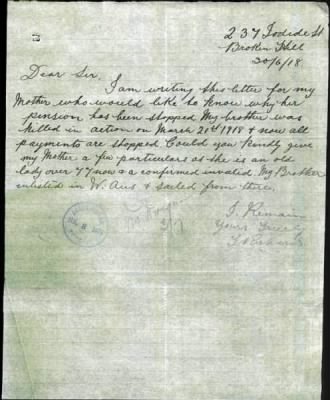 237 Iodide St
Broken Hill
20/6/18
Dear Sir.
I am writing this letter for my
Mother who would like to know why her
pension has been stopped My brother was
killed in action on March 21st 1918 & now all
payments are stopped. Could you kindly give
my Mother a few particulars as she is an old
lady over 77 now & a confirmed invalid. My Brother
enlisted in W. Aus & sailed from there.
I Remain
Yours Truly